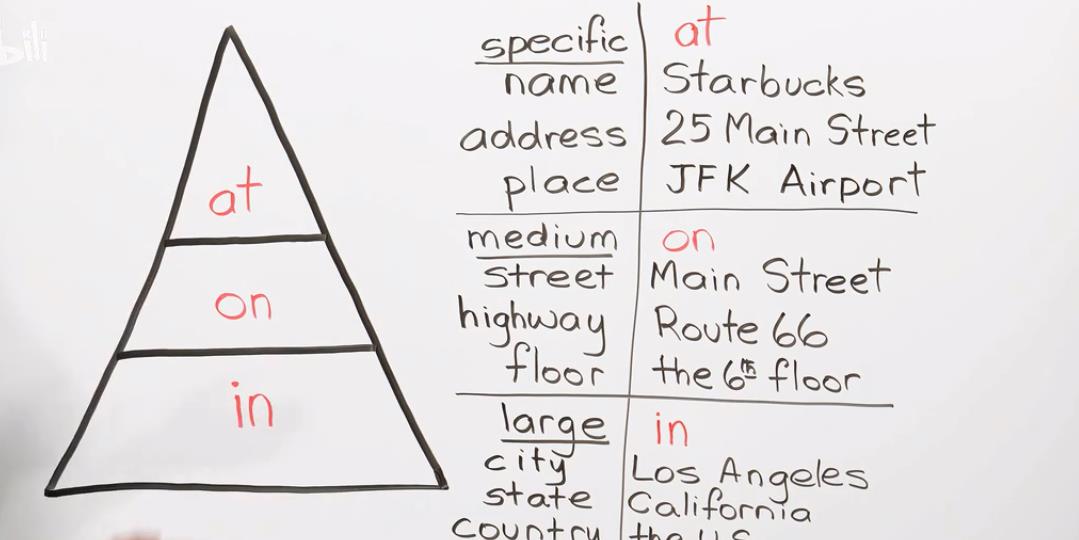 at
on
in
specific at
name Starbucks
address 25 Main Street
place JFK Airport
medium on
street Main Street
highway Route 66
floor the 6th floor
large in
city Los Angeles
state California
country the U.S.